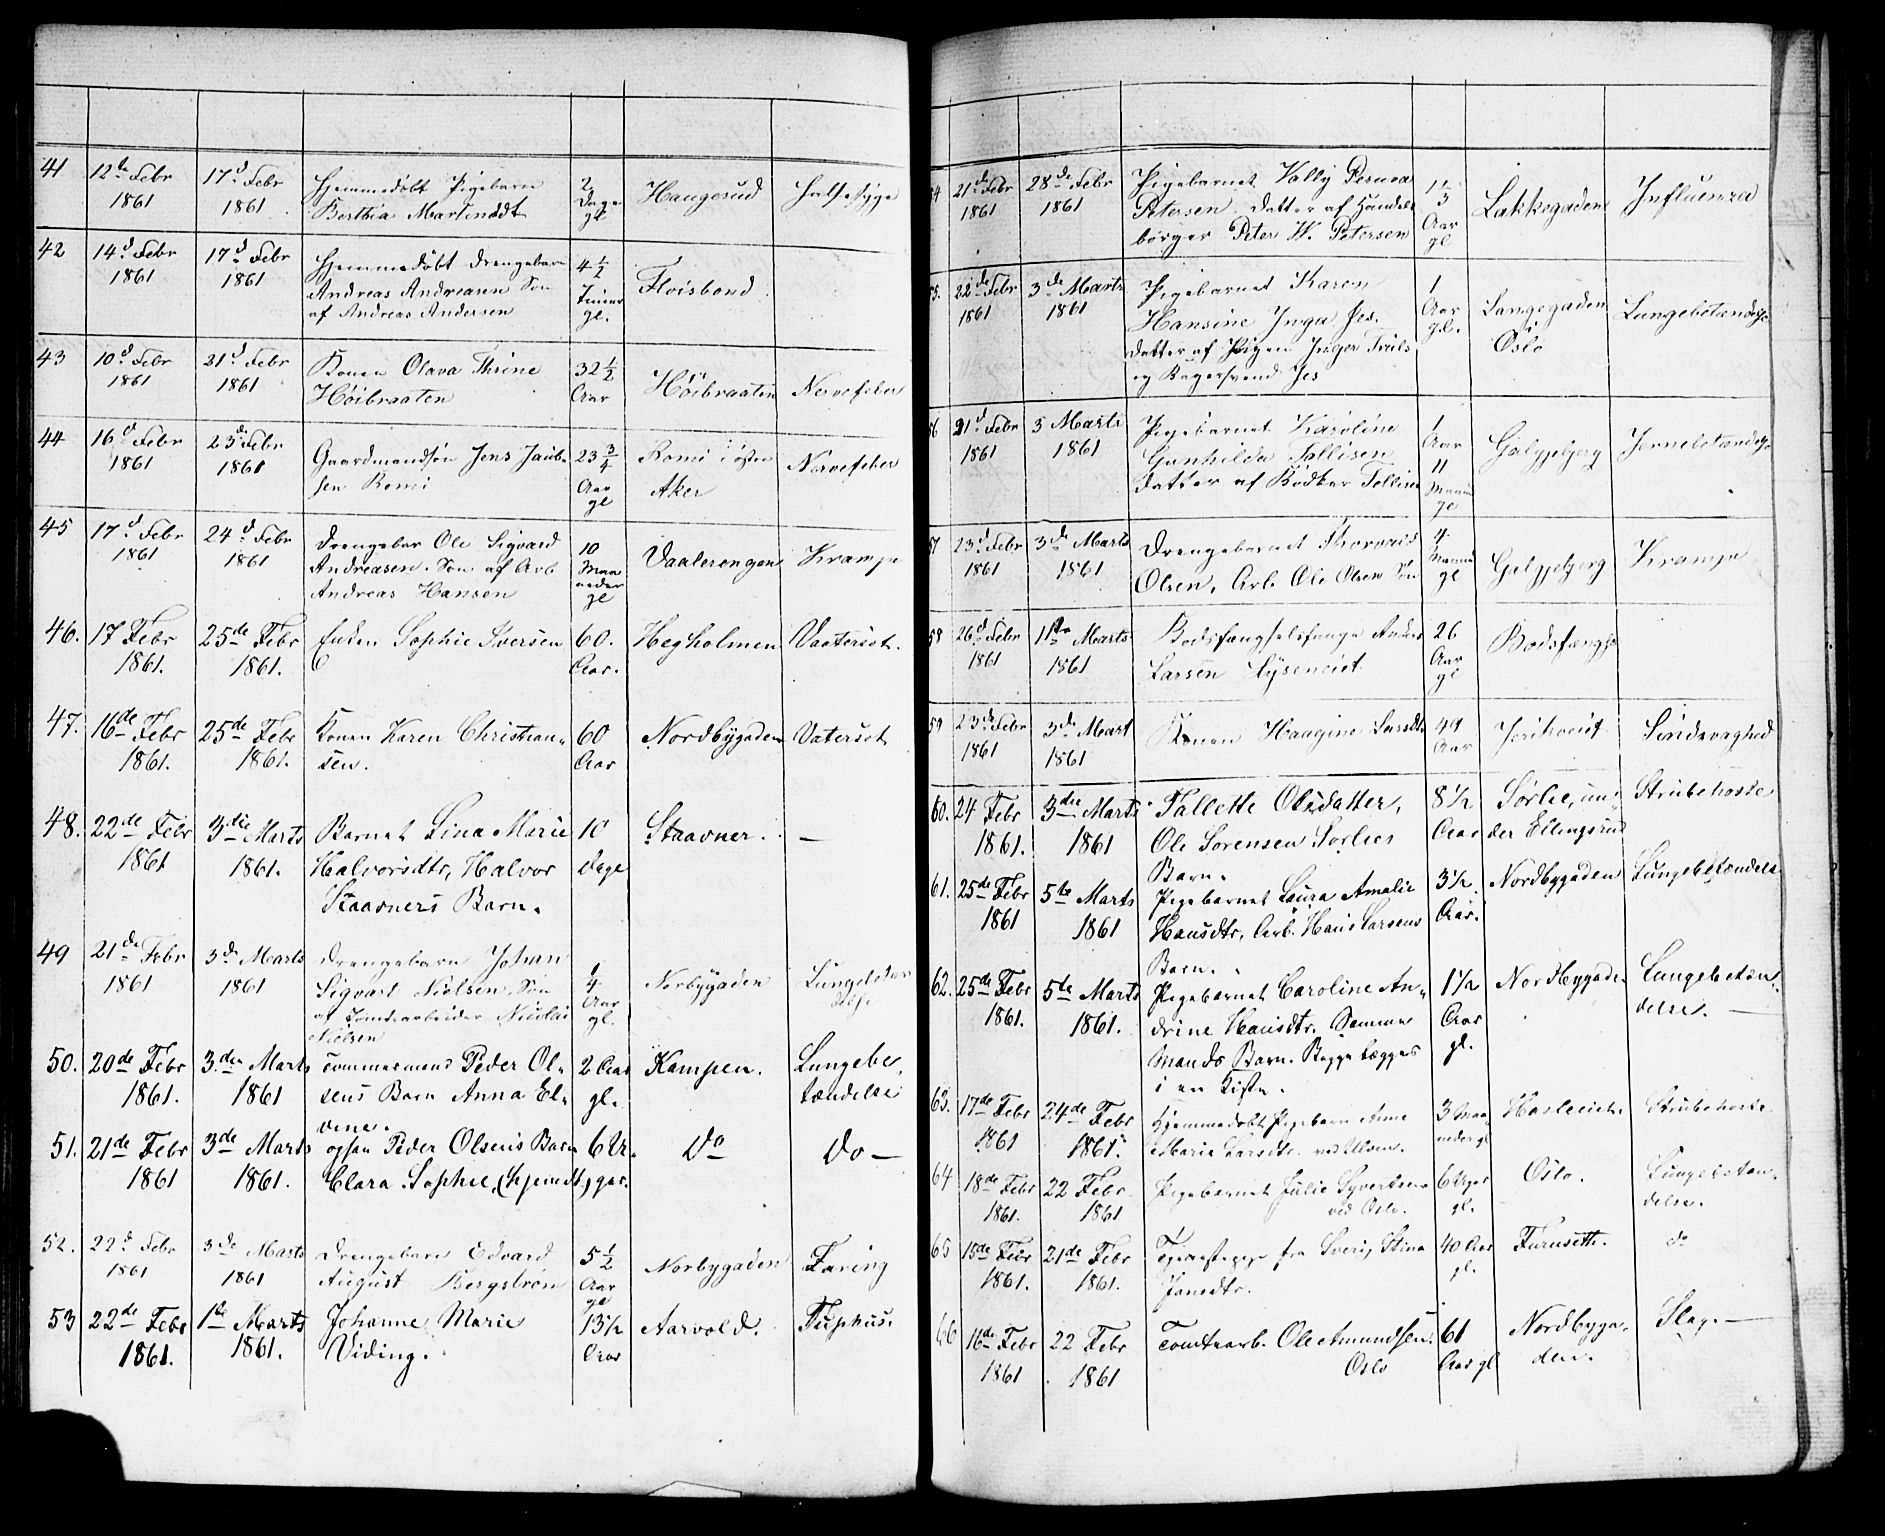 41 12te Febr 1861 17d Febr 1861 Hjemmedöbt Pigebarn
Berthia Martinsdt 2 Dage gl Haugesud Halsesyge
42 14d Febr 1861 17d Febr 1861 Hjemmedöbt Drengebarn
Andreas Andreasen Sön
af Andreas Andersen 4 1/2 Timer gl. Floisbond
43 10d Febr 1861 21d Febr 1861 Konen Olava Thrine
Höibraaten 32 1/2 Aar Höibraaten Nervefeber
44 16d Febr 1861 23de Febr 1861 Gaardmandsön Jens Jaub-
sen Romi 23 3/4 Aar gl Romi i östre
Aker Nervefeber
45 17d Febr 1861 24d Febr 1861 Drengebar Ole Sigvard
Andreasen. Sön af Arb
Andreas Hansen 10 Maaneder gl Vaalerengen Krampe
46. 17 Febr 1861. 25de Febr 1861. Enken Sophie Iversen 60. Aar. Hegholmen Vatersot.
47. 16de Febr 1861. 25de Febr 1861. Konen Karen Christian-
sen. 60 Aar Nordbygaden Vatersot
48. 22de Febr 1861 3die Marts 1861. Barnet Lina Marie
Halvorsdtr, Halvor
Staavners Barn. 10 Dage Staavner. —
49 21de Febr 1861 3de Marts 1861 Drengebarn Johan
Sigvart Nielsen Sön
af Tomtearbeider Nicolai
Nielsen 1/4 Aar gl. Norbygaden
50. 20de Febr 1861. 3die Marts 1861 Tømmermand Peder Ol-
sens Barn Anna El-
vine. 2 Aar gl. Kampen. Lungebe-
tændelse
51. 21de Febr 1861 3de Marts 1861. ogsaa Peder Olsens Barn
Clara Sophie, (hjemdt) 6 U-
ger. Do Do —
52. 22d Febr 1861 3de Marts 1861 Drengebarn Edvard
August Bergström 5 1/2 Aar gl Norbygaden Tæring
53 22de Febr 1861. 1te Marts 1861. Johanne Marie
Viding. 13 1/2 Aar Aarvold. Typhus.
54 21de Febr 1861 28de Febr 1861 Pigebarnet Vally
Petersen. Datter af Handels-
borger Peter W. Petersen 1 1/3 Aar gl Lakkegaden Influenza
55. 22de Febr 1861 3de Marts 1861 Pigebarnet Karen
Hansine Inga Jes.
Datter af Pigen Inger Truls
og Bagersvend Jes 1 Aar gl. Langegaden
Oslo Lungebetændelse
56 21d Febr 1861 3 Marts 1861 Pigebarnet Karoline
Gunhilda Tollisen
Datter af Bödker Tollisen 1 Aar 11 Maaned gl Galgjebjerg
57 23d Febr 1861 3de Marts 1861 Drengebarnet Thorvald
Olsen, Arb. Ole Olsen Sön 4 Maaned gl Galgjebjerg Krampe
58 26d Febr 1861 1te Marts 1861 Bodsfængselsfange Anders
Larsen 26 Aar gl Bodsfængs
59 23de Febr 1861 3de Mart 1861 Konen Haagine Larsdtr 49 Aar Sindsvaghed
60. 24 Febr 1861. 3die Marts 1861 Tallette Olsdatter,
Ole Sørensen Sørlies
Barn. 8 1/2 Aar Sørlie, un-
der Ellingsrud Strubehoste
61. 25de Febr 1861 5te Marts 1861 Pigebarnet Laura Amalie
Hansdtr, Arb. Hans Larsens
Barn. 3 1/2 Aar. Nordbygaden Lungebetændelse
62. 25de Febr 1861. 5te Marts 1861. Pigebarnet Caroline An-
drine Hansdtr. Samme
Mands Barn. Begge lægges
i en Kiste. 1 1/2 Aar gl. Nordbygade Lungebetæn-
delse. —
63. 17de Febr 1861 24de Febr 1861. Hjemmedøbt Pigebarn Anne
Marie Larsdtr. ved Ulven. 3 Maa-
neder gl Strubehoste
64 18de Febr 1861. 22 Febr 1861 Pigebarnet Julie Syvertsen
ved Oslo. 6 Uger gl. Oslo. Lungebetæn-
delse.
65 15de Febr 1861. 21de Febr 1861. fra Sverig Stina
Jonsdtr. 40 Aar gl. Furuseth. do
66 16de Febr 1861 22 Febr 1861 Tomtearb. Ole Amundsen.
Oslo 61 Aar gl Nordbyga-
den. Slag. —